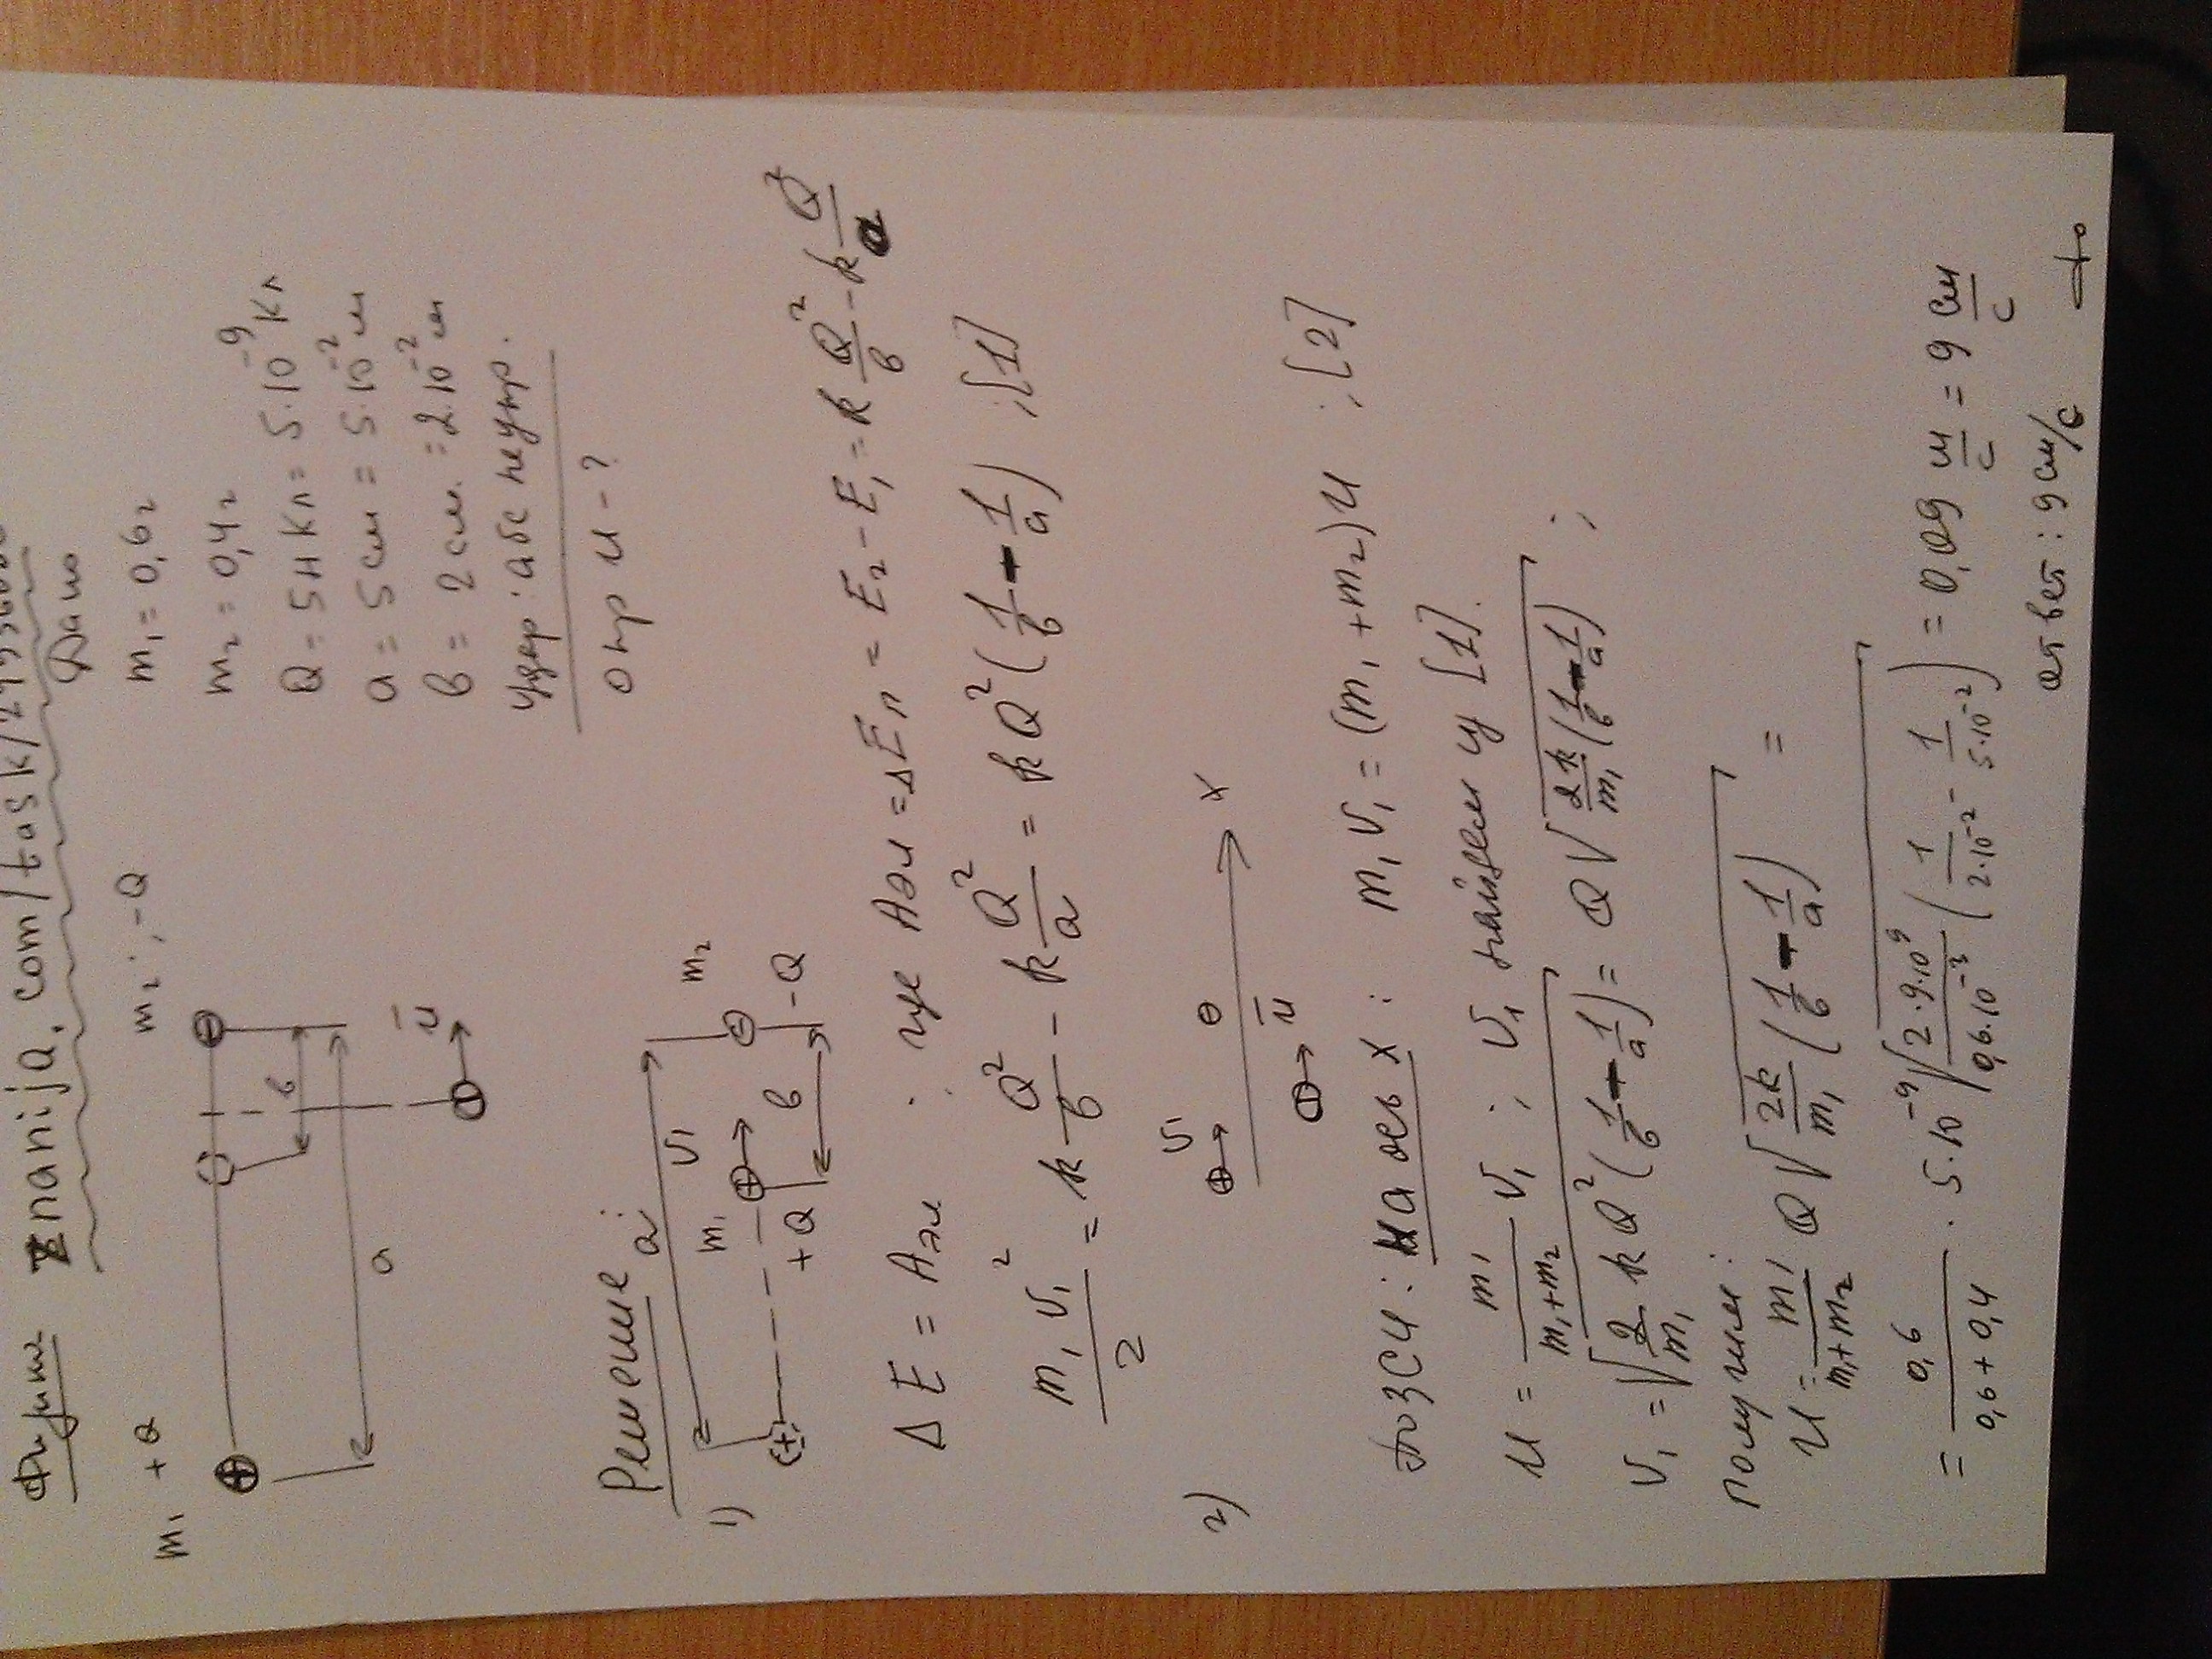 Физика Znanija.com/task/
Дано
m₁ +Q m₂; -Q
m₁ = 0,6 г
m₂ = 0,4 г
Q = 5 нКл = 5·10⁻⁹ Кл
a = 5 см = 5·10⁻² м
в = 2 см. = 2·10⁻² м
удар: абс неупр.
опр u - ?
в
a
ū
Решение
1) a
m₁ v₁ m₂
+Q в -Q
ΔE = Aэл ; где Aэл = ΔEп = E₂ - E₁ = k Q²/в - k Q²/a
m₁v₁²/2 = k Q²/в - k Q²/a = kQ²(1/в - 1/a) ; [1]
2) v₁ x
ū
по ЗСИ: на ось x: m₁v₁ = (m₁ + m₂)u ; [2]
u = m₁/(m₁+m₂) v₁ ; v₁ найдем из [1].
v₁ = √(2/m₁ kQ²(1/в - 1/a)) = Q√(2k/m₁ (1/в - 1/a)) ;
получим:
u = m₁/(m₁+m₂) Q√(2k/m₁ (1/в - 1/a)) =
= 0,6/(0,6+0,4) · 5·10⁻⁹ √(2·9·10⁹/0,6·10⁻³ (1/2·10⁻² - 1/5·10⁻²)) = 0,09 м/с = 9 см/с
ответ: 9 см/с